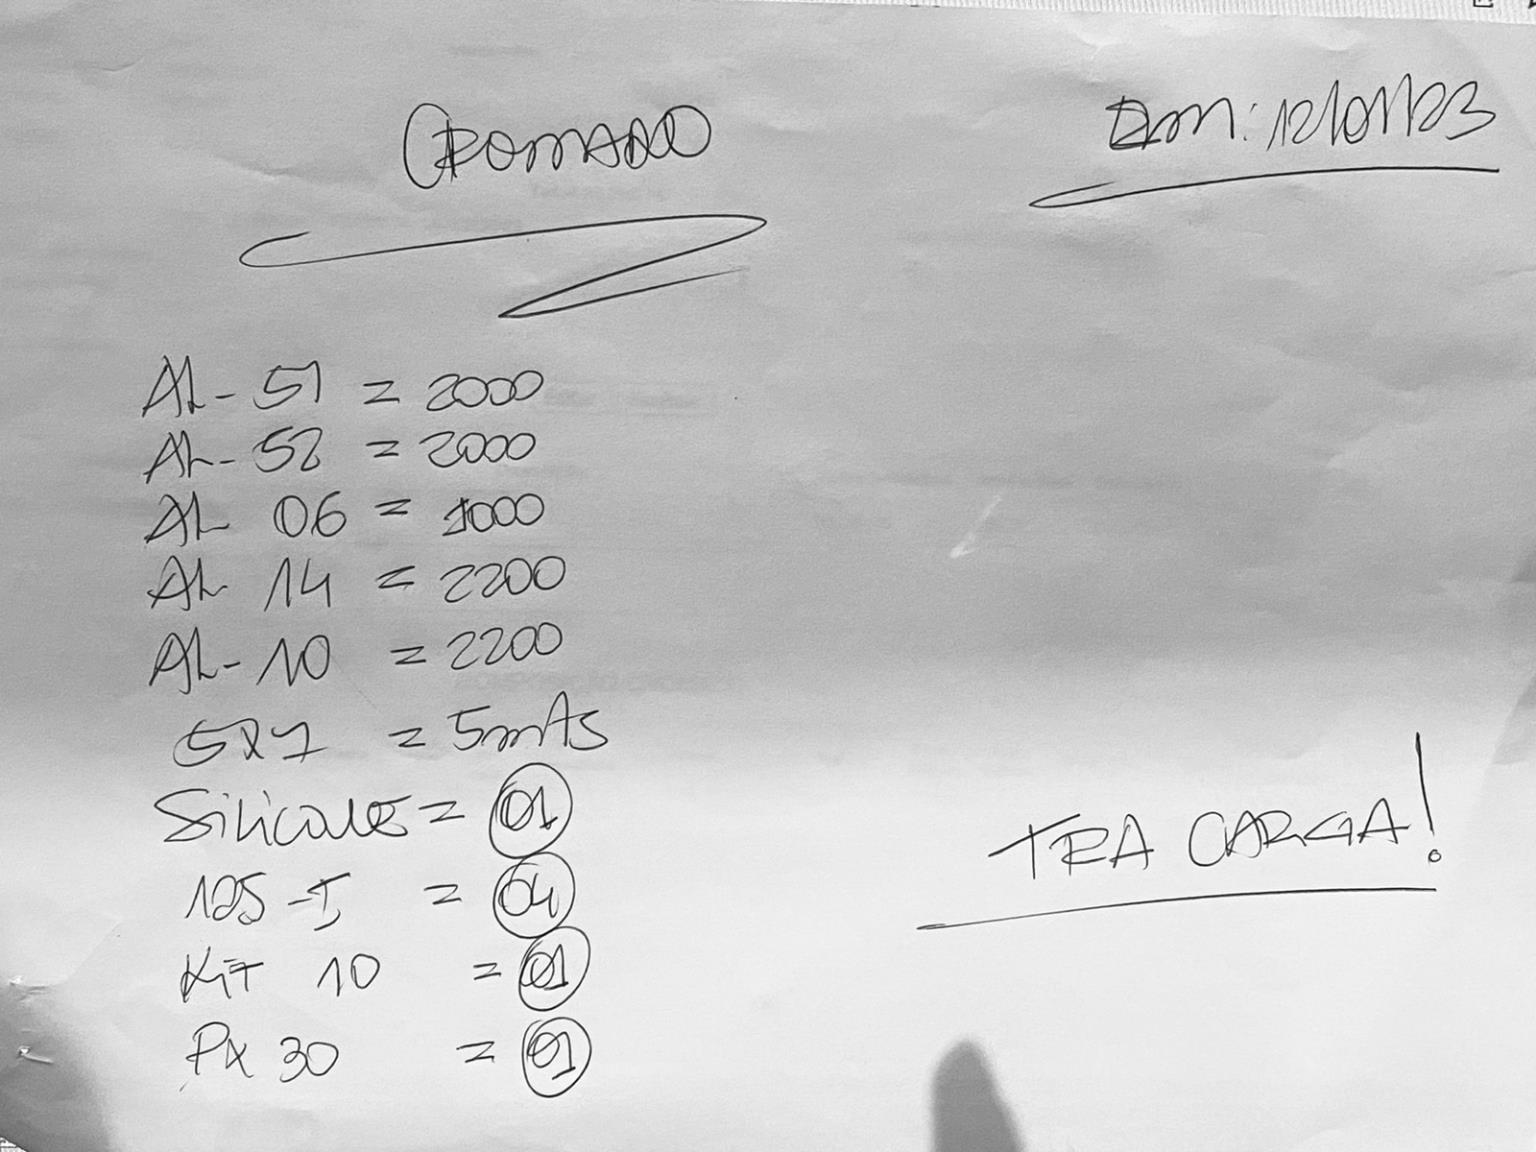 CROMADO
Em: 12/01/23
AL- 51 = 2000
AL- 52 = 2000
AL 06 = 1000
AL 14 = 2200
AL- 10 = 2200
5x7 = 5mts
Silicone = 01
125-I = 04
Kit 10 = 01
PX 30 = 01
TRA CARGA!